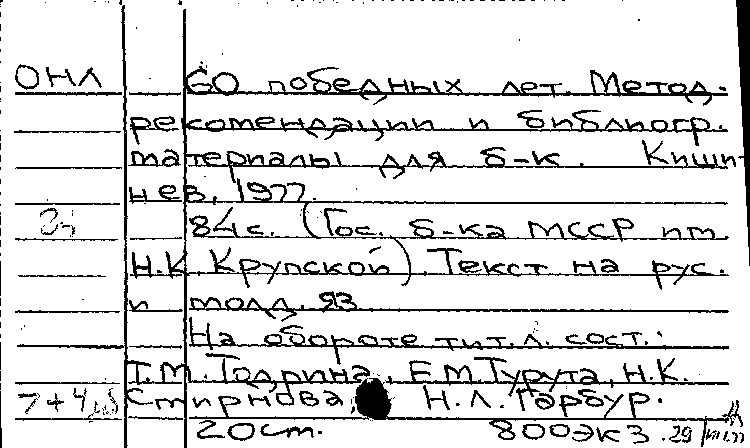 ОНЛ 60 победных лет. Метод.
рекомендации и библиогр.
материалы для б-к. Киши-
нев, 1977.
84с. (Гос. б-ка МССР им
Н.К. Крупской). Текст на рус.
и молд. яз
На обороте тит.л. сост.:
Т.М. Тодрина, Е.М. Турута, Н.К.
Смирнова, Н.Л. Гарбур.
20см. 800экз. 29